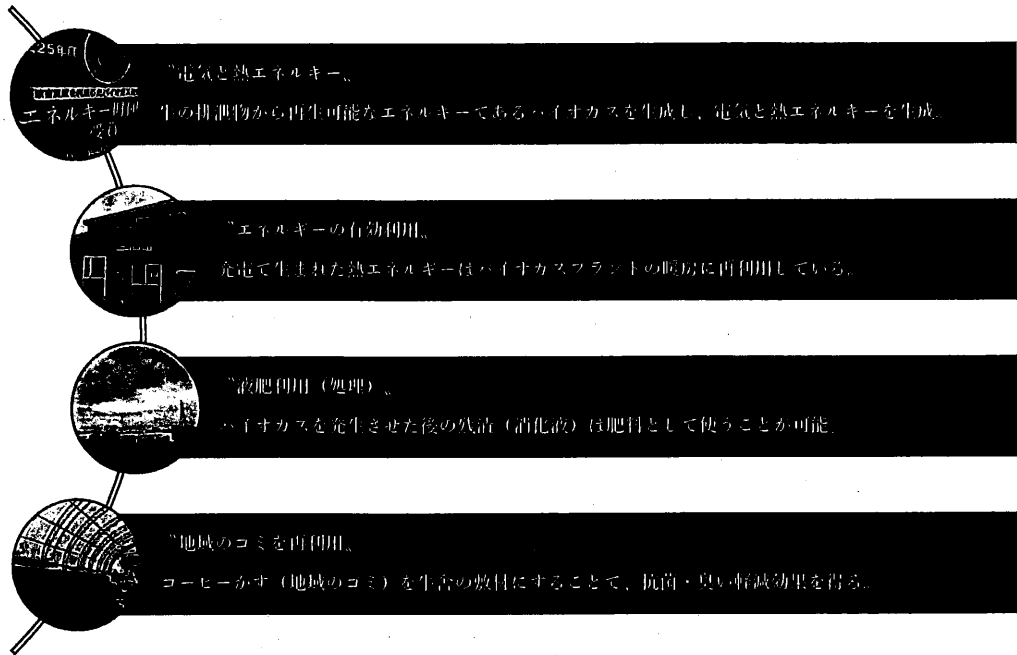 25年度
エネルギー
〝電気と熱エネルギー〟
牛の排泄物から再生可能なエネルギーであるバイオガスを生成し、電気と熱エネルギーを生成。
〝エネルギーの有効利用〟
発電で生まれた熱エネルギーはバイオガスプラントの暖房に再利用している。
〝液肥利用（処理）〟
バイオガスを発生させた後の残渣（消化液）は肥料として使うことが可能。
〝地域のゴミを再利用〟
コーヒーかす（地域のゴミ）を牛舎の敷材にすることで、抗菌・臭い軽減効果を得る。